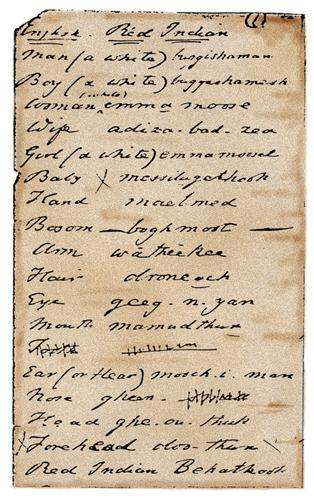 English. Red Indian
Man (a white) bugishaman
Boy (a white) buggashamesh
Woman (white) emma moose
Wife adiza-bad-zea
Girl (a white) emmamoosel
Baby X messiliget-hook
Hand maelmed
Bosom — boghmoot —
Arm watheekee
Hair droneoch
Eye geeg-n-yan
Mouth mamudthun
Ear (or Hear) mooch-i-man
Nose gheen-
Head ghe-ou-thuk
X Forehead dos-thun \
Red Indian Behathook